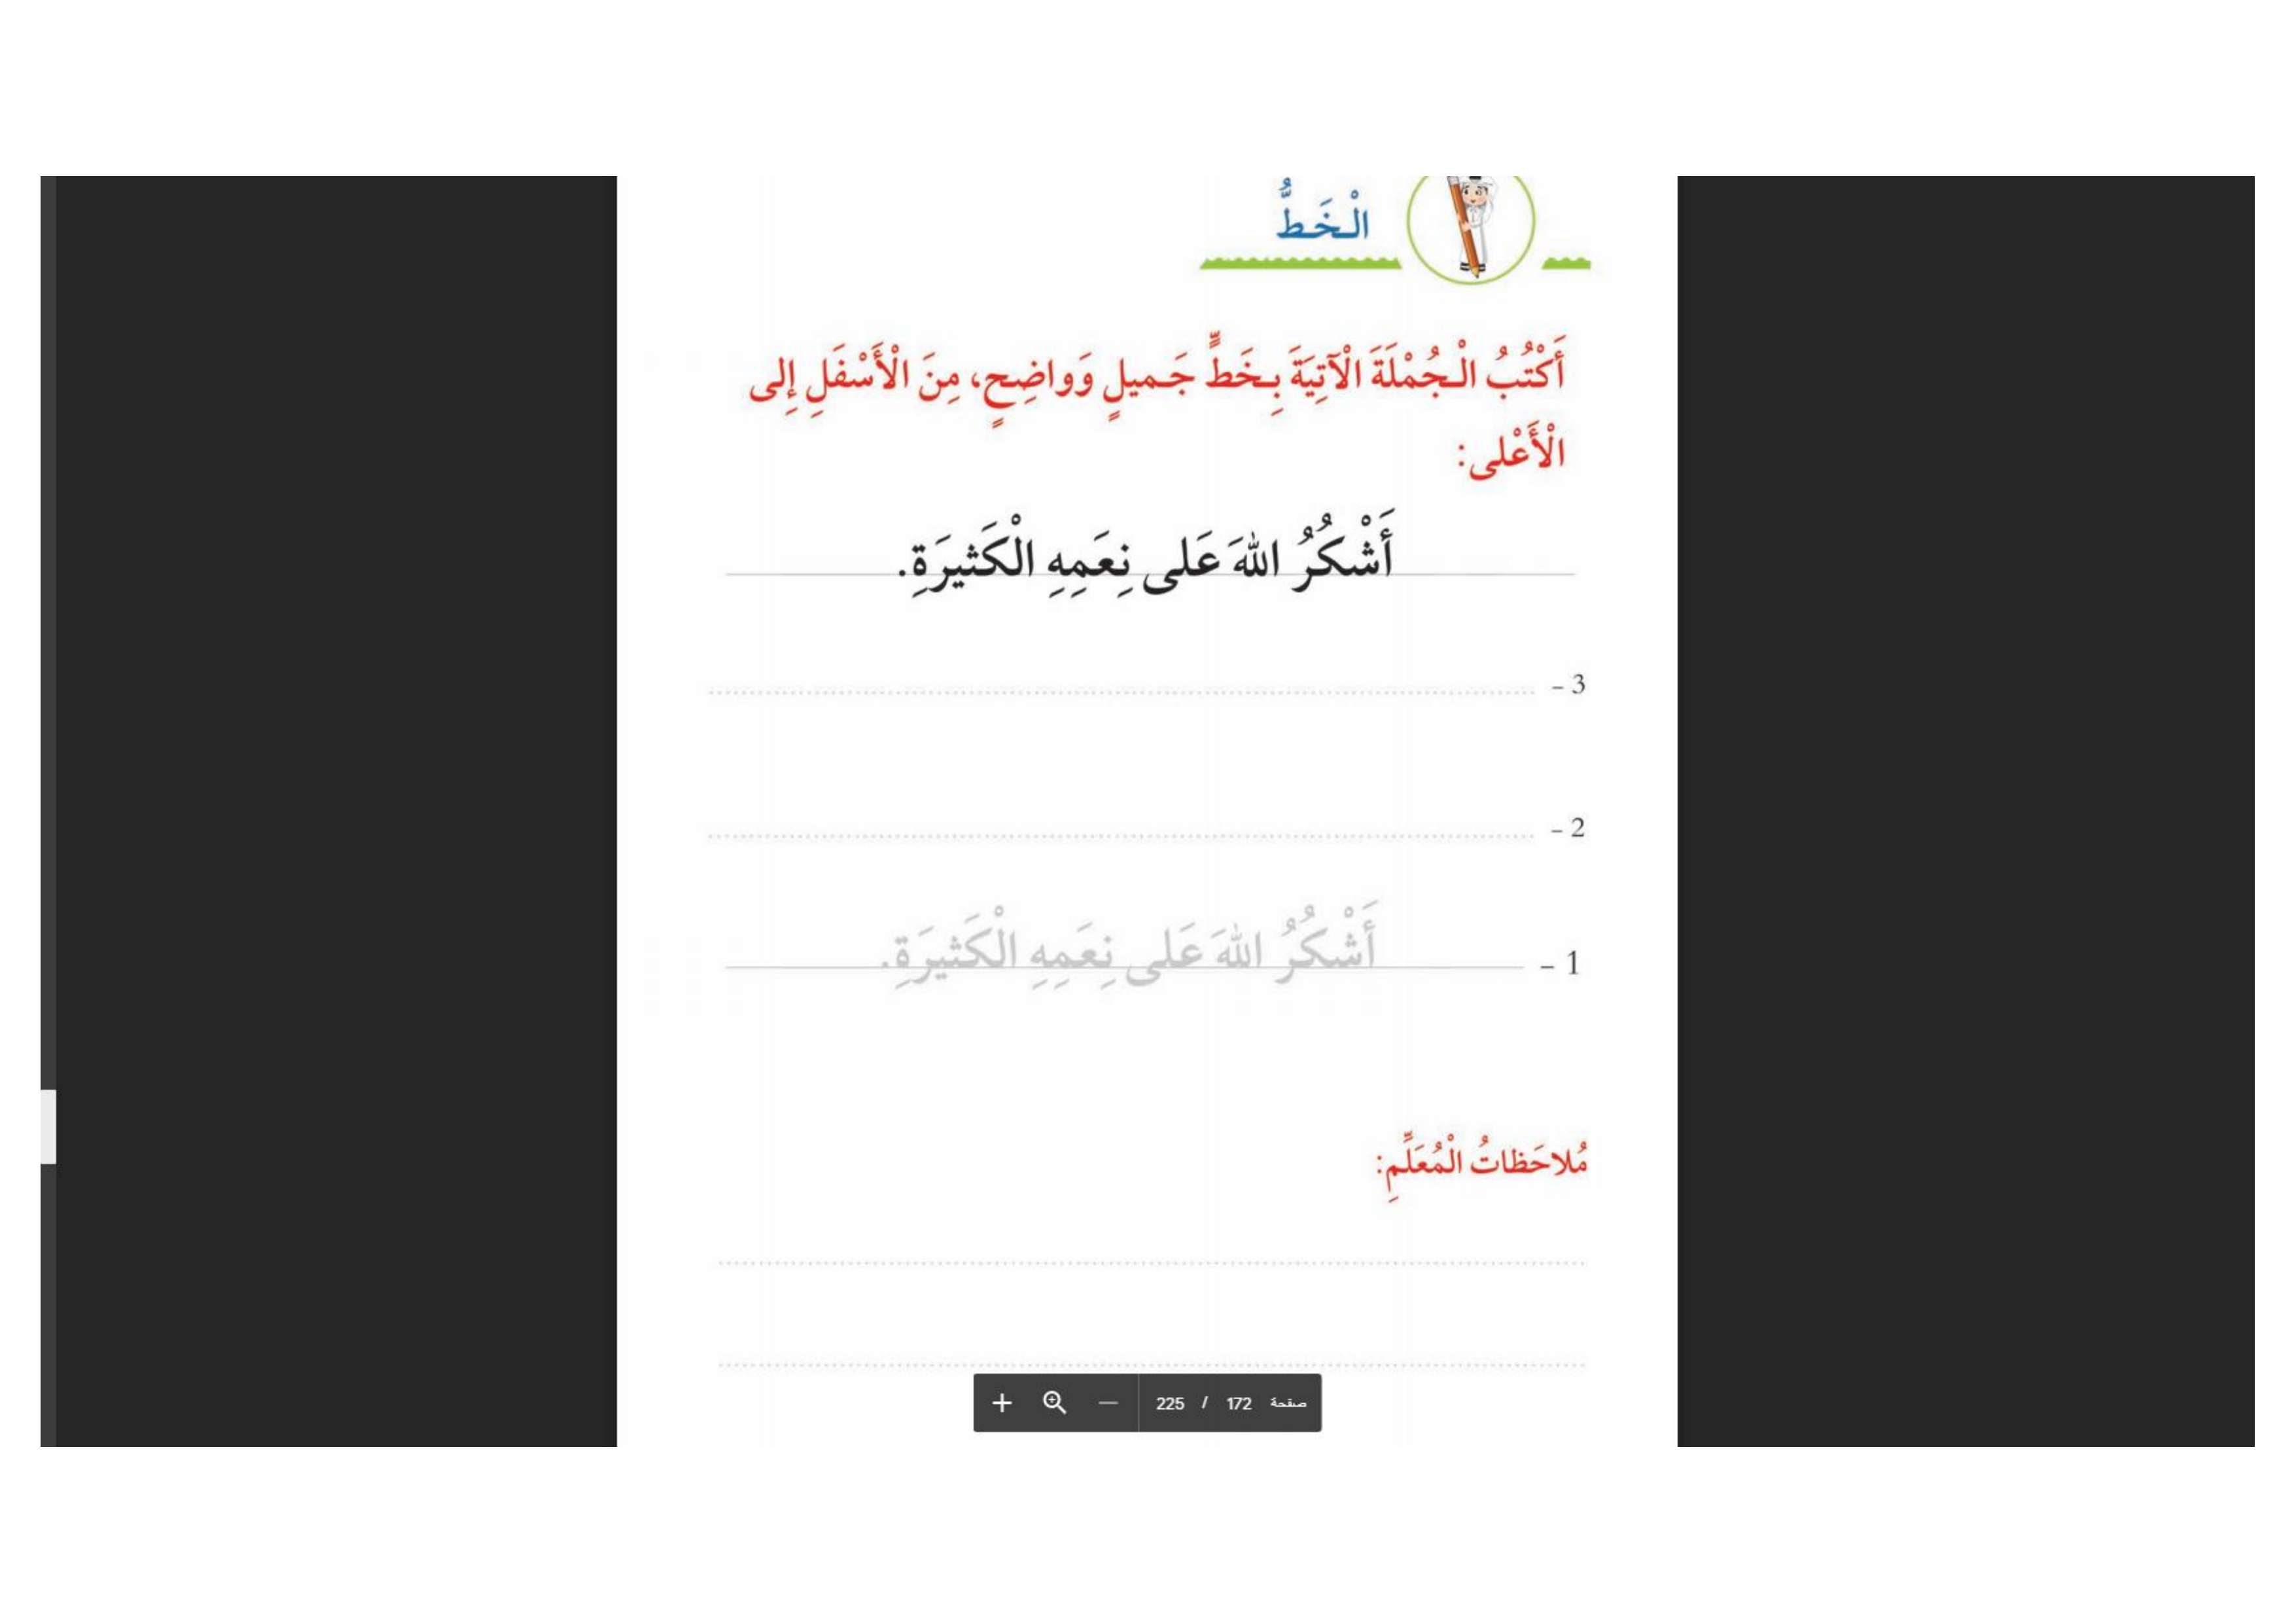 الْخَطُّ
أَكْتُبُ الْجُمْلَةَ الْآتِيَةَ بِخَطٍّ جَميلٍ وَواضِحٍ، مِنَ الْأَسْفَلِ إِلى
الْأَعْلى:
أَشْكُرُ اللهَ عَلى نِعَمِهِ الْكَثيرَةِ.
3 -
2 -
1 - أَشْكُرُ اللهَ عَلى نِعَمِهِ الْكَثيرَةِ.
مُلاحَظاتُ الْمُعَلِّمِ:
صفحة 172 / 225